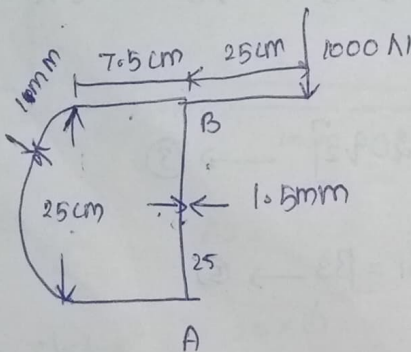 7.5cm
25cm
1000 N
B
25cm
1.5mm
25
A